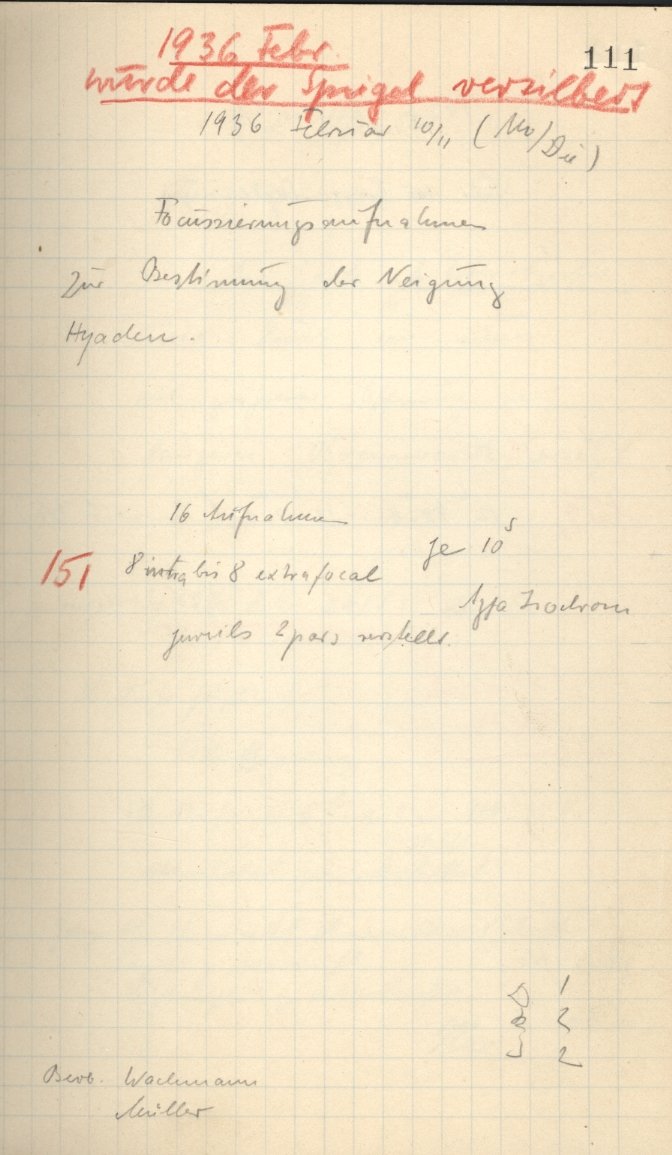 111
1936 Febr.
wurde der Spiegel versilbert
1936 Februar 10/11 (Mo/Die)
Focussierungsaufnahmen
zur Bestimmung der Neigung
Hyaden.
16 Aufnahmen
je 10s
151 8 intra bis 8 extrafocal
Agfa Isochrom
jeweils 2 pars verstellt.
1
2
2
Beob. Wachmann
Müller